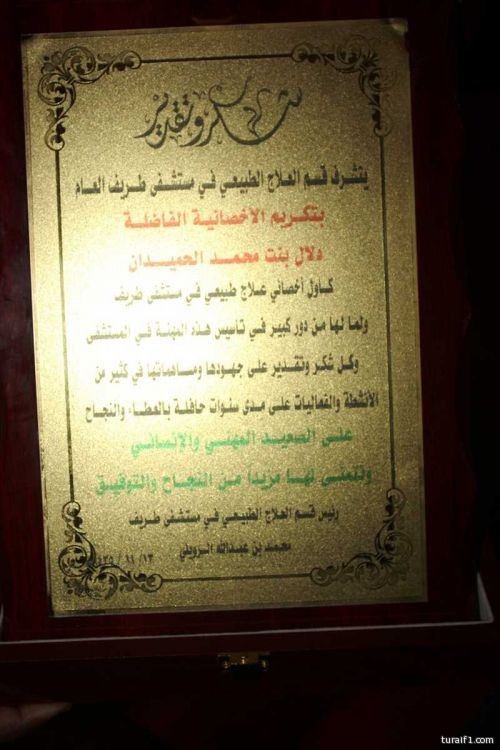 شكر وتقدير
يتشرف قسم العلاج الطبيعي في مستشفى طريف العام
بتكريم الاخصائية الفاضلة
دلال بنت محمد الحميدان
كأول أخصائي علاج طبيعي في مستشفى طريف
ولما لها من دور كبير في تأسيس هذه المهنة في المستشفى
وكل شكر وتقدير على جهودها ومساهماتها في كثير من
الأنشطة والفعاليات على مدى سنوات حافلة بالعطاء والنجاح
على الصعيد المهني والإنساني
ونتمنى لها مزيدا من النجاح والتوفيق
رئيس قسم العلاج الطبيعي في مستشفى طريف
محمد بن عبدالله الرويلي
turaif1.com